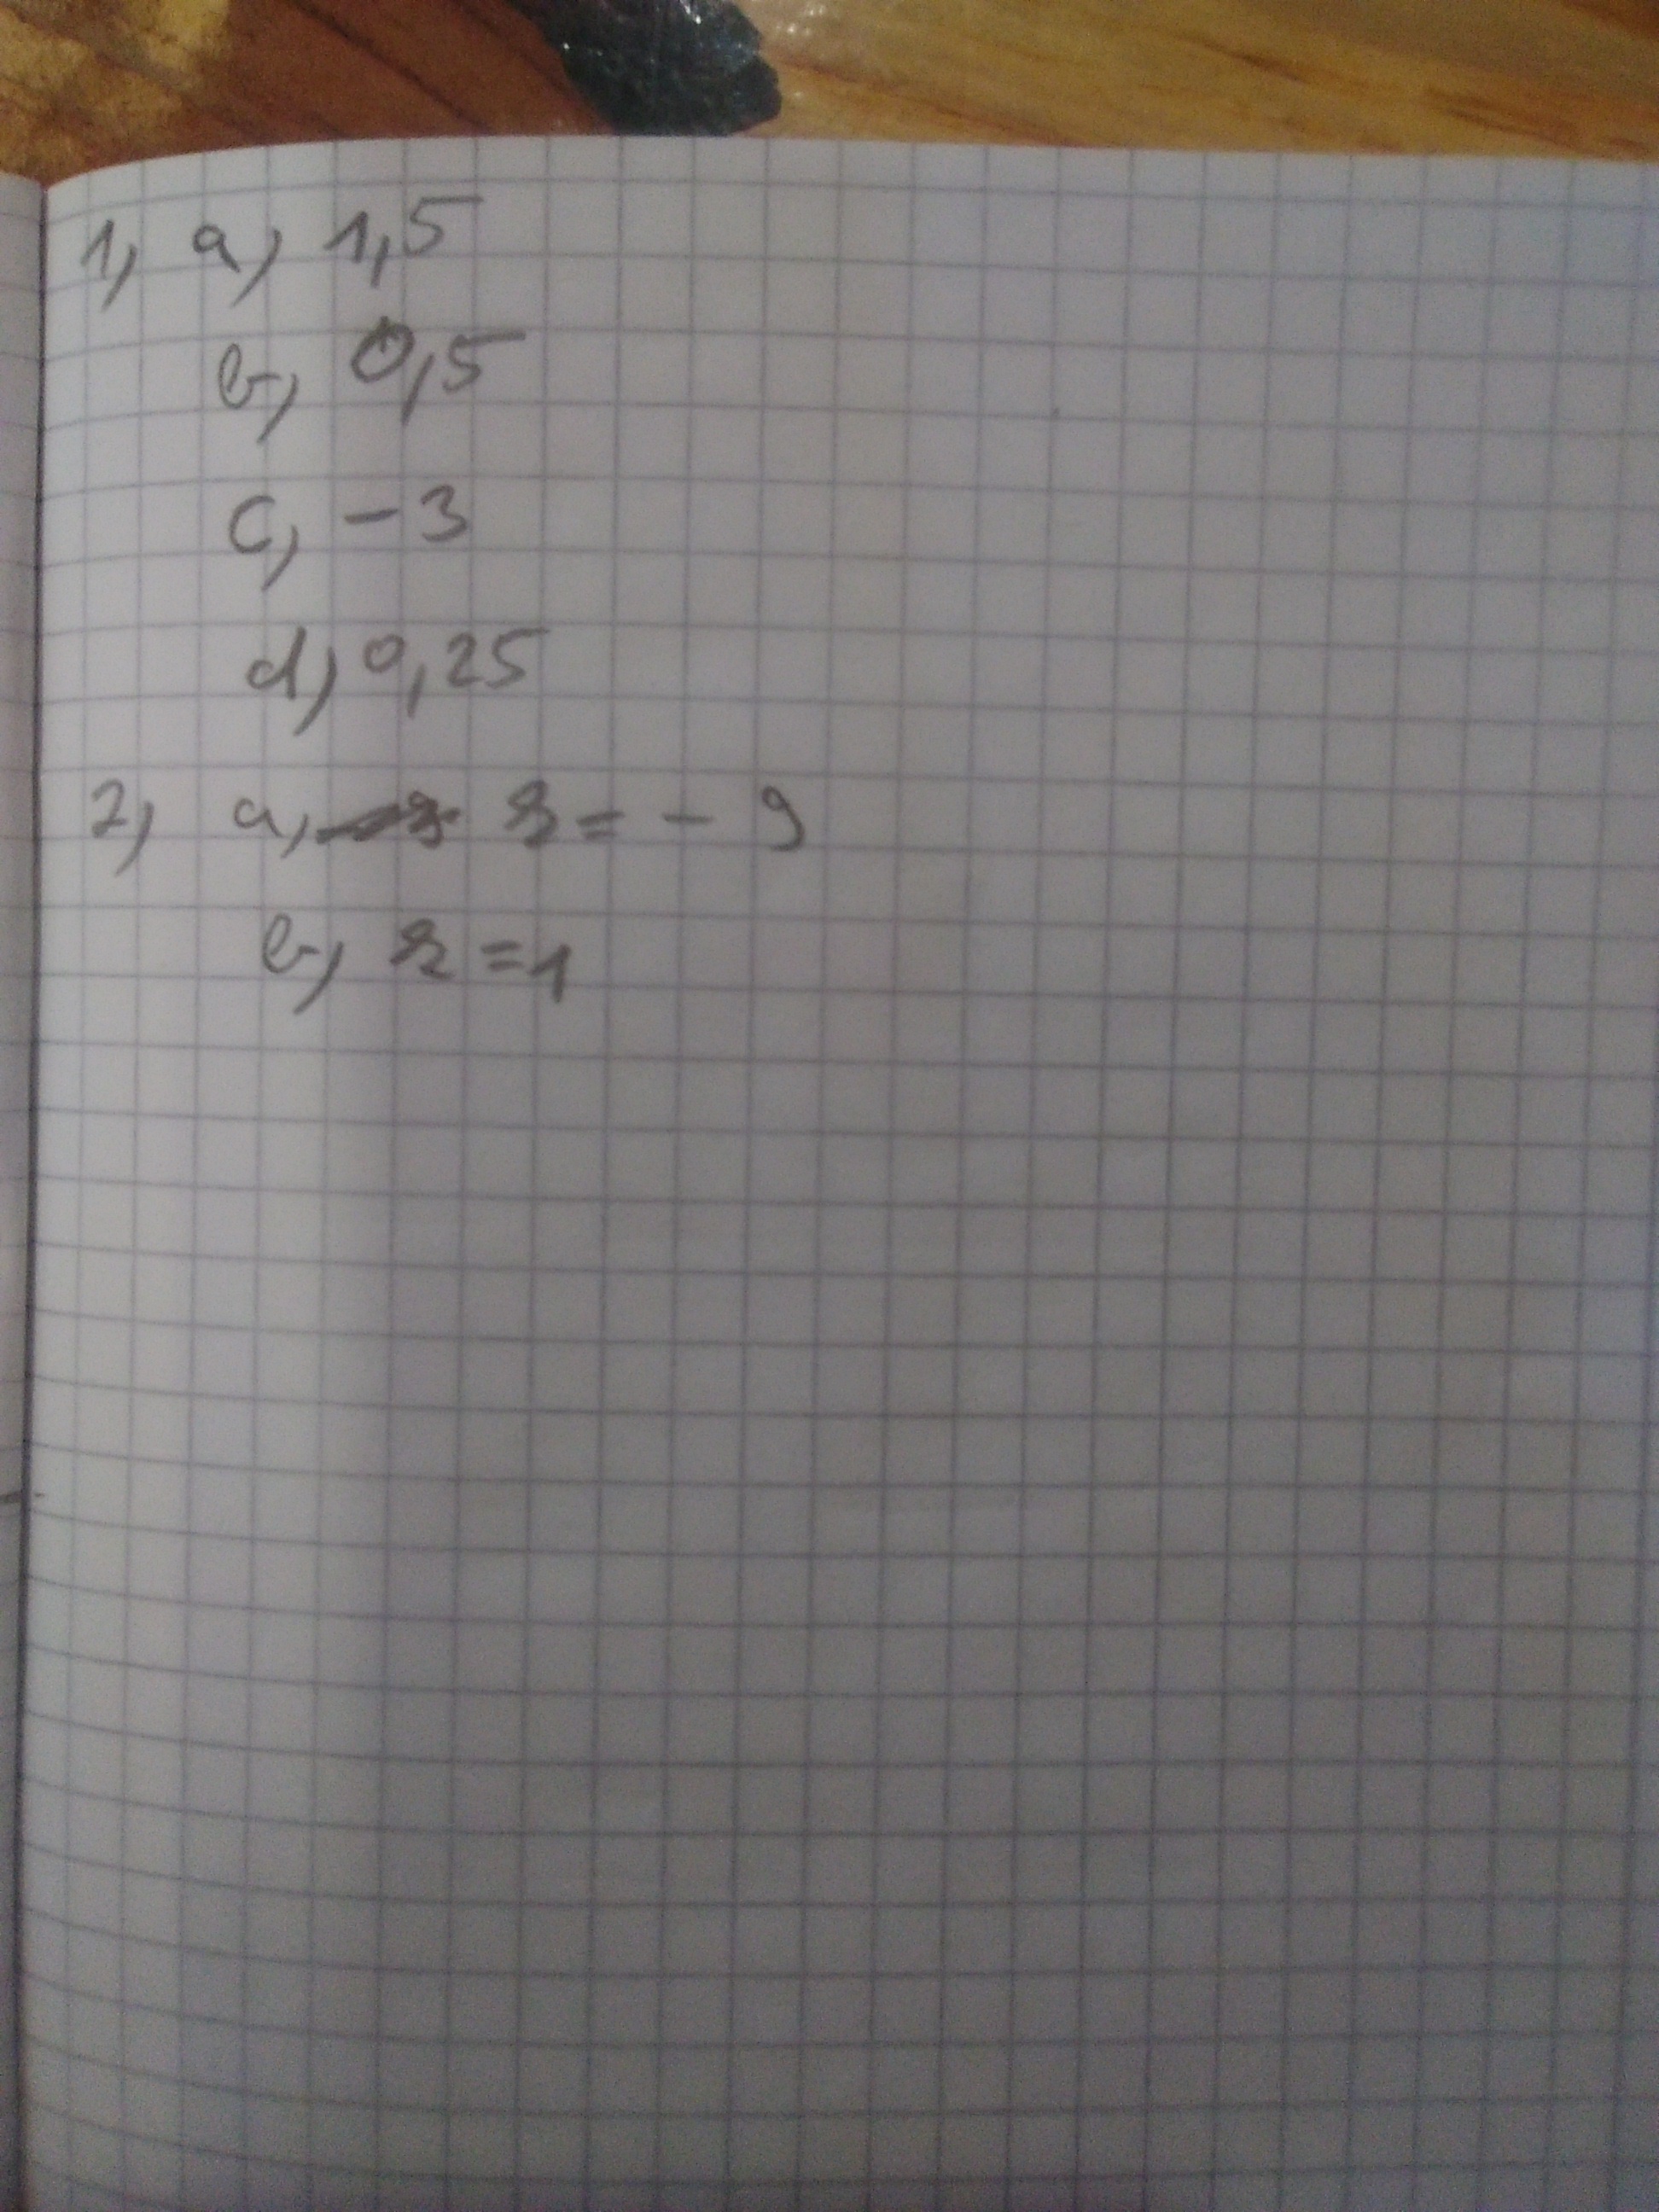 1, a, 1,5
b, 0,5
c, -3
d, 0,25
2, a, = - 9
b, = 1